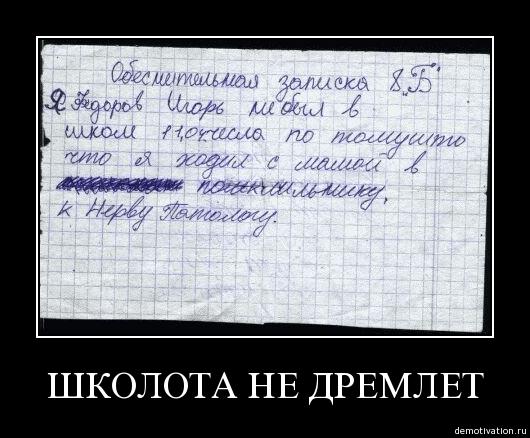 Обеснительная записка 8 „Б"
Я Федоров Игорь небыл в
школ 11,04 числа по томушто
что я ходил с мамой в
к Нерву Патологу.
ШКОЛОТА НЕ ДРЕМЛЕТ
demotivation.ru